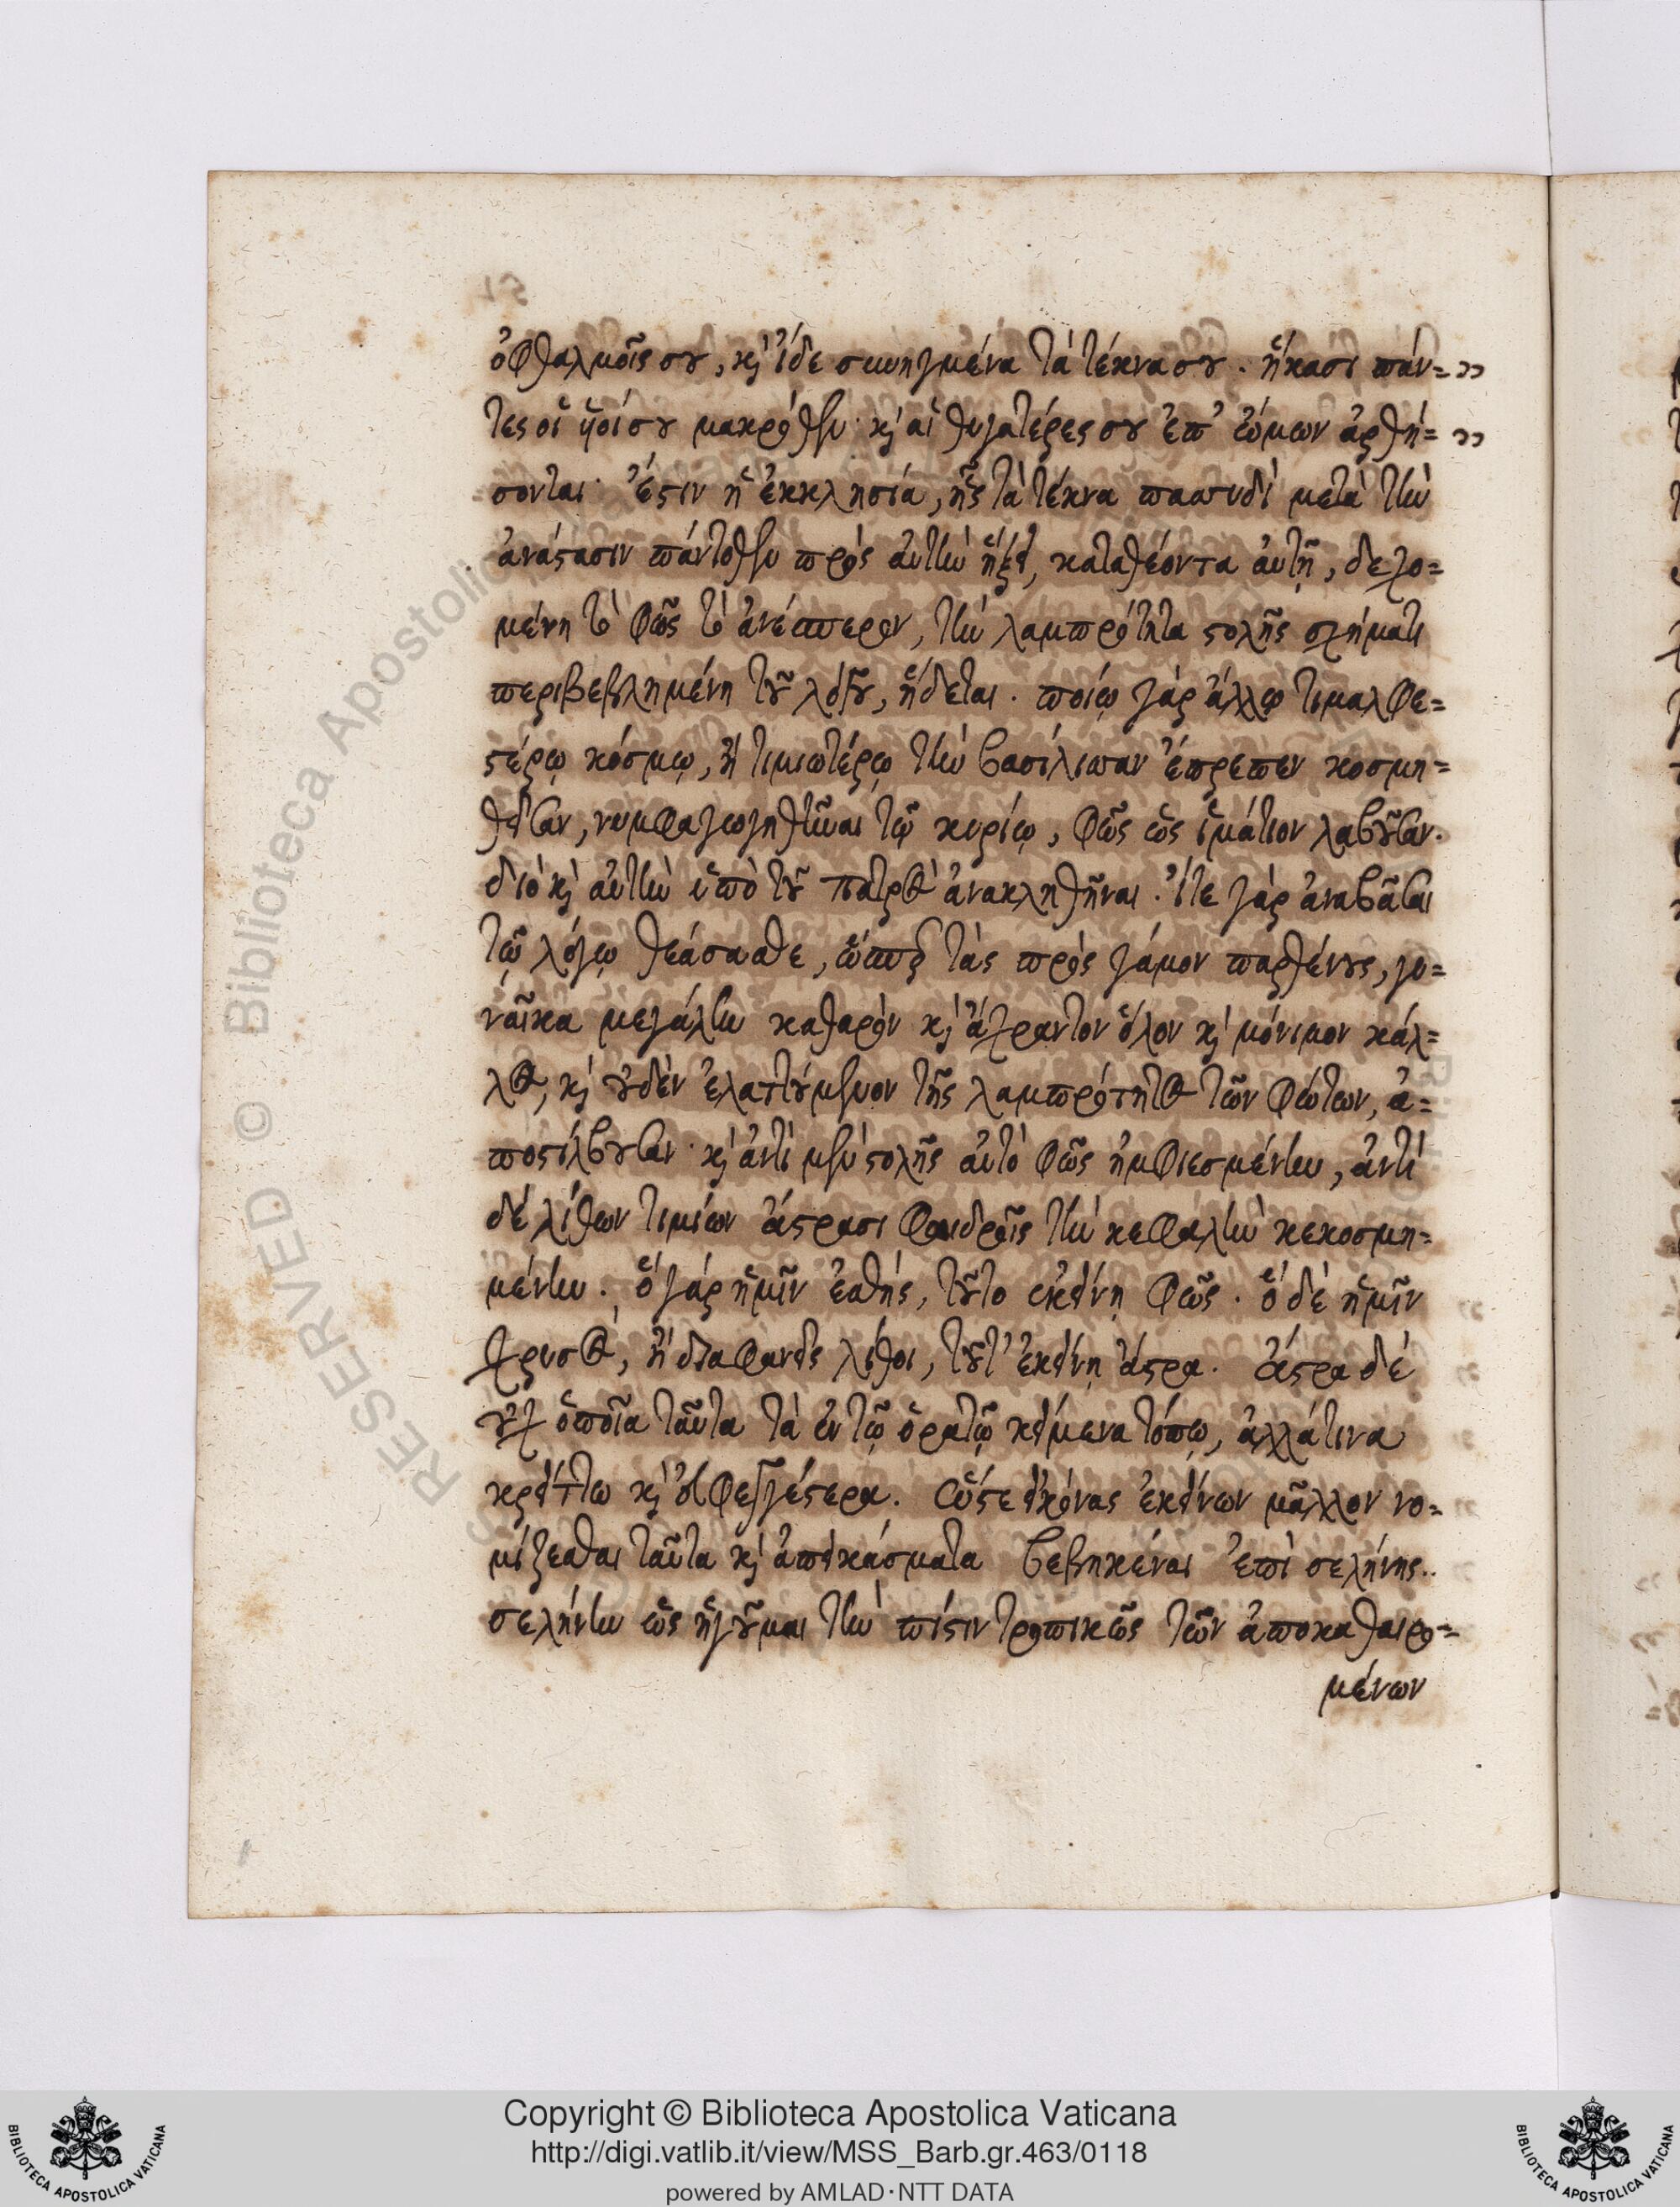 ὀφθαλμοῖς σου, καὶ ἴδε συνηγμένα τὰ τέκνα σου. ἥκασι πάν=
τες οἱ υἱοί σου μακρόθεν· καὶ αἱ θυγατέρες σου ἐπ' ὤμων ἀρθή=
σονται· ἔστιν ἡ ἐκκλησία, ἧς τὰ τέκνα πασσυδὶ μετὰ τὴν
ἀνάστασιν πάντοθεν πρὸς αὐτὴν ἥξει, καταθέοντα αὐτῇ, δεχο=
μένη τὸ φῶς τὸ ἀνέσπερον, τὴν λαμπρότητα στολῆς σχήματι
περιβεβλημένη τοῦ λόγου, ἥδεται. ποίῳ γὰρ ἄλλῳ τιμαλφε=
στέρῳ κόσμῳ, ἢ τιμιωτέρῳ τὴν βασίλισσαν ἔπρεπεν κοσμη=
θεῖσαν, νυμφαγωγηθῆναι τῷ κυρίῳ, φῶς ὡς ἱμάτιον λαβοῦσαν.
διὸ καὶ αὐτὴν ὑπὸ τοῦ πατρὸς ἀνακληθῆναι. ἴτε γὰρ ἀναβᾶσαι
τῷ λόγῳ θεάσασθε, ὥσπερ τὰς πρὸς γάμον παρθένους, γυ=
ναῖκα μεγάλην καθαρὸν καὶ ἄχραντον ὅλον καὶ μόνιμον κάλ=
λος, καὶ οὐδὲν ἐλαττούμενον τῆς λαμπρότητος τῶν φώτων, ἀ=
ποστίλβουσαν· καὶ ἀντὶ μὲν στολῆς αὐτὸ φῶς ἠμφιεσμένην, ἀντὶ
δὲ λίθων τιμίων ἄστρασι φαιδροῖς τὴν κεφαλὴν κεκοσμη=
μένην. ὃ γὰρ ἡμῖν ἐσθής, τοῦτο ἐκείνῃ φῶς. ὃ δὲ ἡμῖν
χρυσός, ἢ διαφανεῖς λίθοι, τοῦτ' ἐκείνῃ ἄστρα. ἄστρα δὲ
οὐχ ὁποῖα ταῦτα τὰ ἐν τῷ ὁρατῷ κείμενα τόπῳ, ἀλλάτινα
κρείττω καὶ διαφεγγέστερα. ὥστε εἰκόνας ἐκείνων μᾶλλον νο=
μίζεσθαι ταῦτα καὶ ἀπεικάσματα βεβηκέναι ἐπὶ σελήνης..
σελήνην ὡς ἡγοῦμαι τὴν πίστιν τροπικῶς τῶν ἀποκαθαιρο=
μένων
Copyright © Biblioteca Apostolica Vaticana
http://digi.vatlib.it/view/MSS_Barb.gr.463/0118
powered by AMLAD·NTT DATA